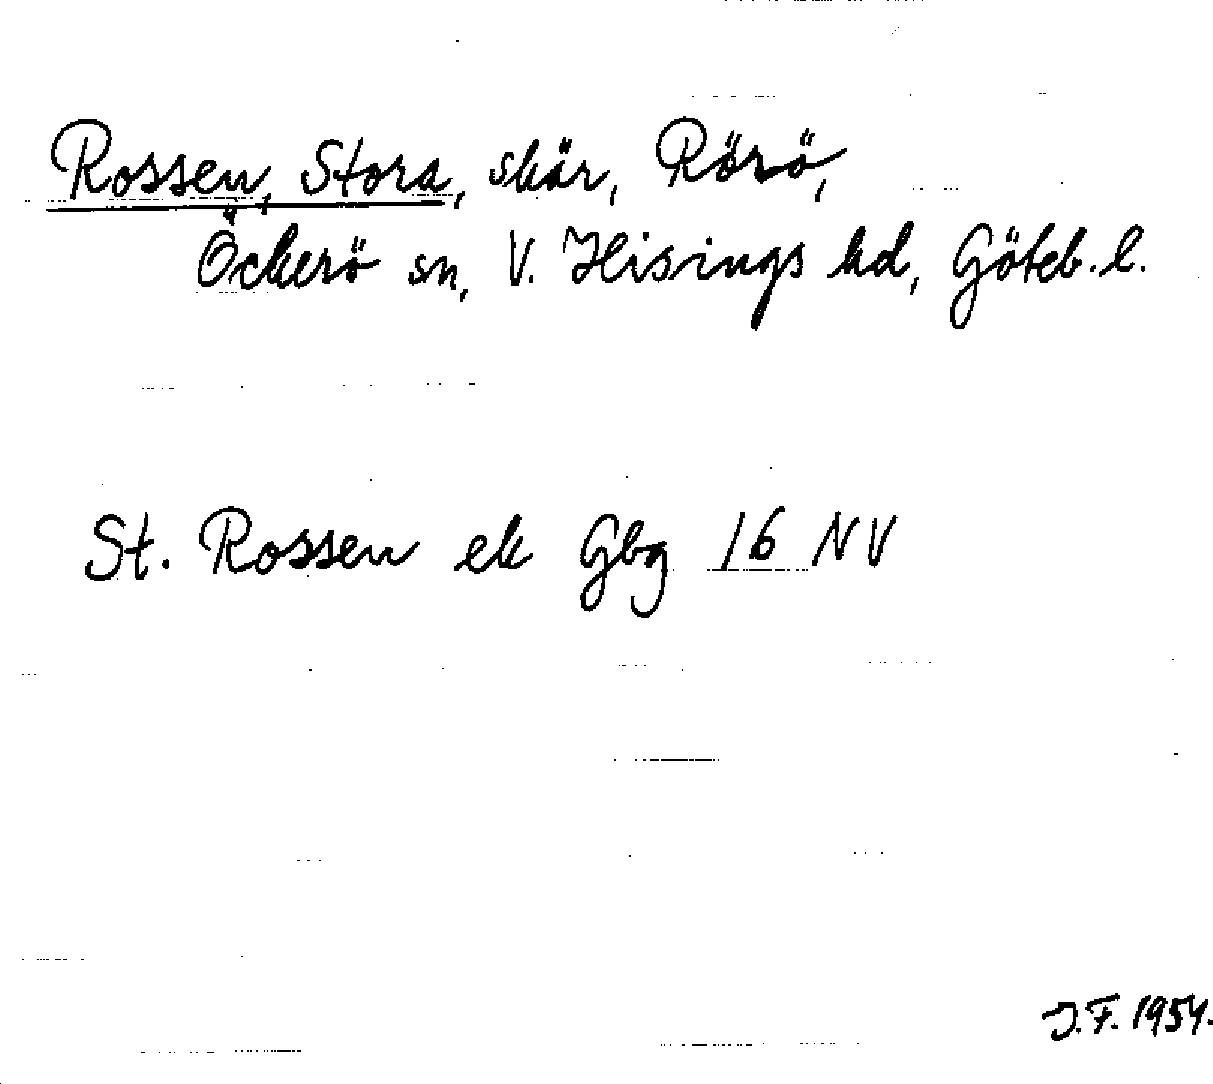 Rossen, Stora, skär, Rörö,
Öckerö sn, V. Hisings hd, Göteb. l.
St. Rossen ek Gbg 16 NV
J.F. 1954.